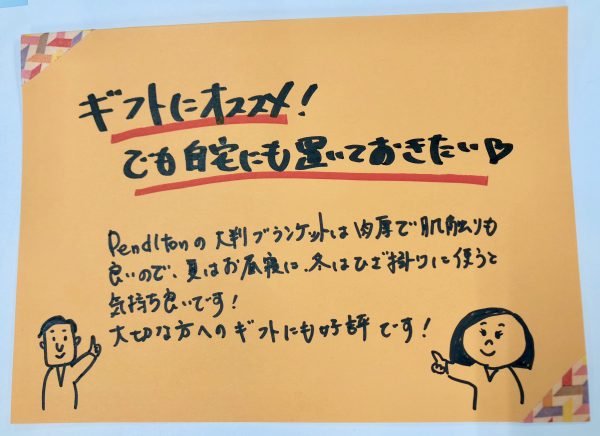 ギフトにオススメ！
でも自宅にも置いておきたい♡
Pendltonの大判ブランケットは肉厚で肌触りも
良いので、夏はお昼寝に、冬はひざ掛けに使うと
気持ち良いです！
大切な方へのギフトにも好評です！